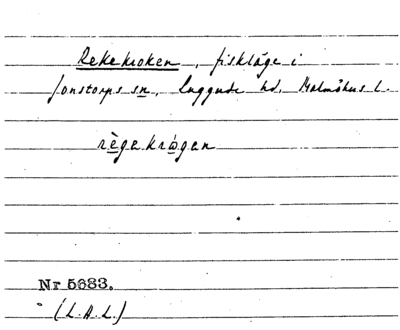 Rekekroken, fiskläge i
Jonstorps sn, Luggude hd, Malmöhus l.
règekrøgen
Nr 5683.
(L.A.L.)